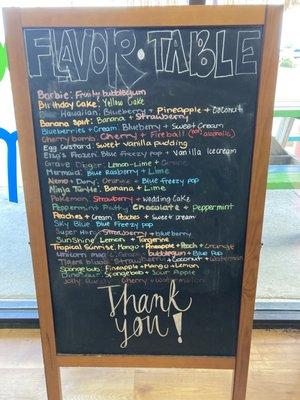 FLAVOR · TABLE
Barbie: Fruity bubblegum
Birthday Cake: Yellow Cake
Blue Hawaiian: Blueberry + Pineapple + Coconut
Banana Split: Banana + Strawberry
Blueberries + Cream: Blueberry + Sweet Cream
Cherry bomb: Cherry + Fireball (non alcoholic)
Egg Custard: Sweet vanilla pudding
Elsa's Frozen: Blue freeze pop + Vanilla Icecream
Grave Digger: Lemon-Lime +
Mermaid: Blue Raspberry + Lime
Nemo + Dory: Orange + Blue freeze pop
Ninja Turtle: Banana + Lime
Pokemon: Strawberry + Wedding Cake
Peppermint Patty: Chocolate + Peppermint
Peaches + Cream: Peaches + Sweet cream
Sky Blue: Blue Freeze pop
Super Hero: Strawberry + blueberry
Sunshine: Lemon + Tangerine
Tropical Sunrise: Mango + Pineapple + Peach + Orange
Unicorn: bubblegum + Blue Pop
Tigers Blood: Strawberry + Coconut + Watermelon
Spongebob: Pineapple + Mango + Lemon
Dinosaur: + Sour Apple
Jolly Cherry +
Thank
you!